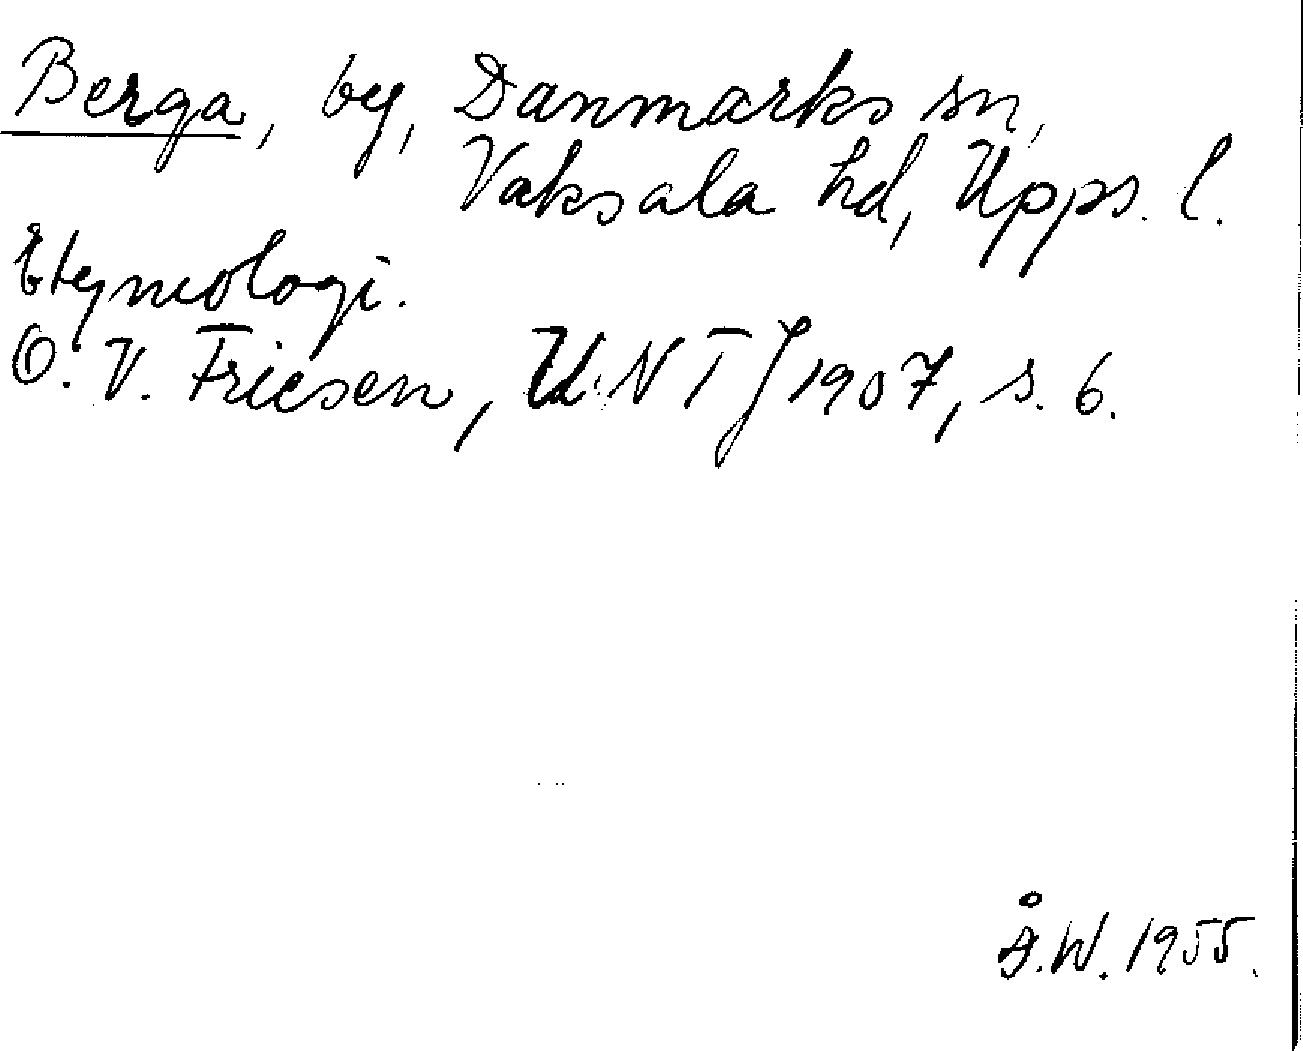 Berga, by, Danmarks sn,
Vaksala hd, Upps. l.
Etymologi.
O. V. Friesen, U.N T J 1907, s. 6.
Å.W. 1955.